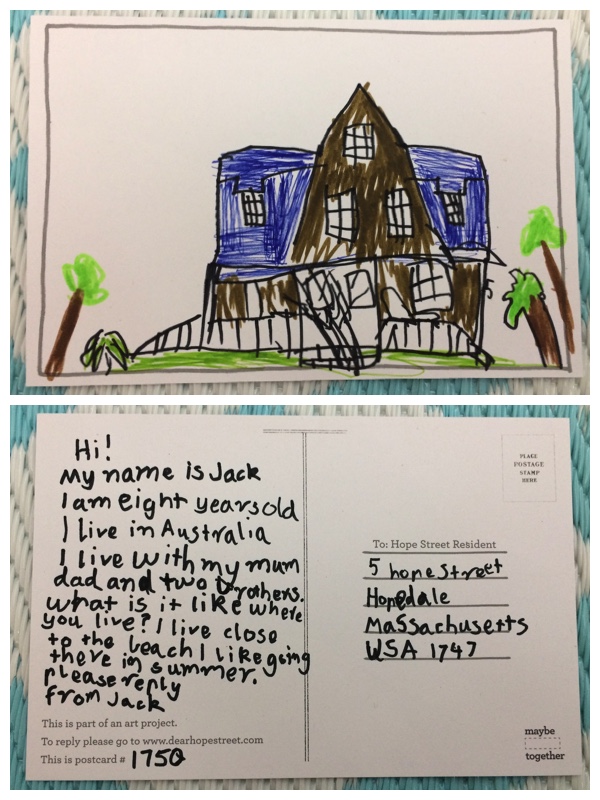 Hi!
My name is Jack
I am eight years old
I live in Australia
I live with my mum
dad and two brothers.
what is it like where
you live? I live close
to the beach I like going
there in summer.
please reply
from Jack
This is part of an art project.
To reply please go to www.dearhopestreet.com
This is postcard # 1750
PLACE
POSTAGE
STAMP
HERE
To: Hope Street Resident
5 hope street
Hopedale
Massachusetts
USA 1747
maybe
together